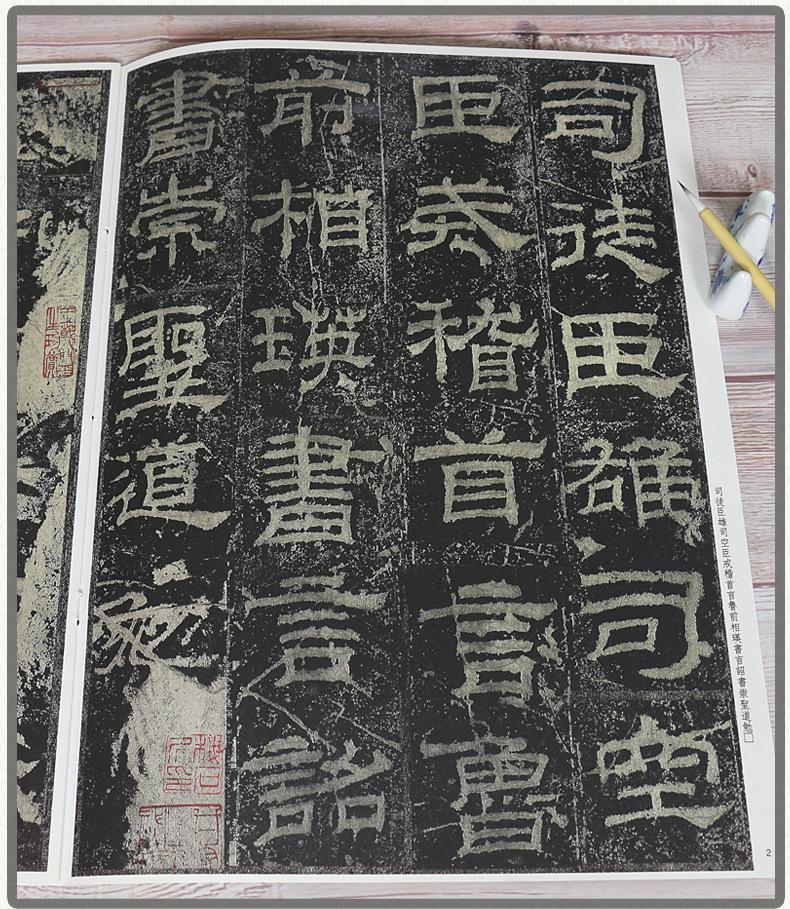 司徒臣雄司空
臣戒稽首言魯
前相瑛書言詔
書崇聖道勉
司徒臣雄司空臣戒稽首言魯前相瑛書言詔書崇聖道勉□
2